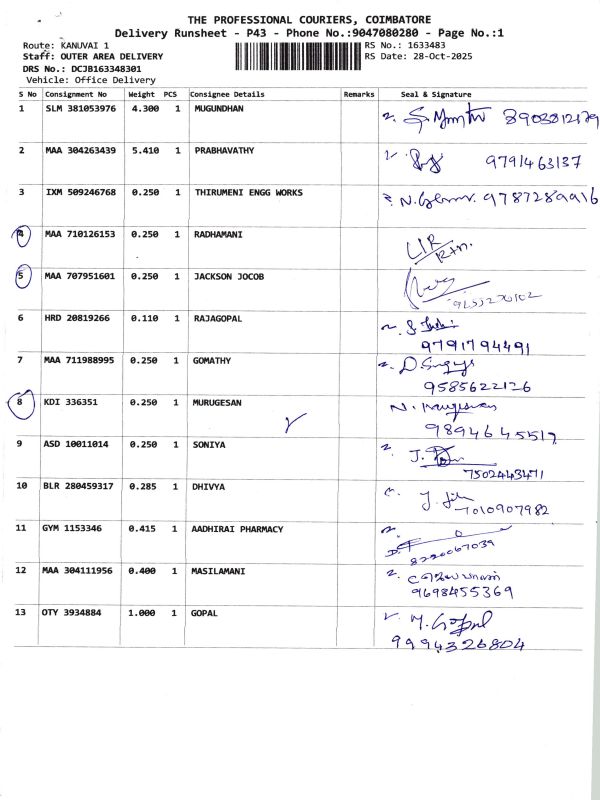 THE PROFESSIONAL COURIERS, COIMBATORE
Delivery Runsheet - P43 - Phone No.:9047080280 - Page No.:1
Route: KANUVAI 1
RS No.: 1633483
Staff: OUTER AREA DELIVERY
RS Date: 28-Oct-2025
DRS No.: DCJB163348301
Vehicle: Office Delivery
S No Consignment No Weight PCS Consignee Details Remarks Seal & Signature
1 SLM 381053976 4.300 1 MUGUNDHAN 8903812179
2 MAA 304263439 5.410 1 PRABHAVATHY 9791463137
3 IXM 509246768 0.250 1 THIRUMENI ENGG WORKS 9787289916
4 MAA 710126153 0.250 1 RADHAMANI
5 MAA 707951601 0.250 1 JACKSON JOCOB
6 HRD 20819266 0.110 1 RAJAGOPAL
9791794491
7 MAA 711988995 0.250 1 GOMATHY
9585622126
8 KDI 336351 0.250 1 MURUGESAN
9894645517
9 ASD 10011014 0.250 1 SONIYA
7502443471
10 BLR 280459317 0.285 1 DHIVYA
7010907982
11 GYM 1153346 0.415 1 AADHIRAI PHARMACY
8220067039
12 MAA 304111956 0.400 1 MASILAMANI
9698455369
13 OTY 3934884 1.000 1 GOPAL M. Gopal
9994326804